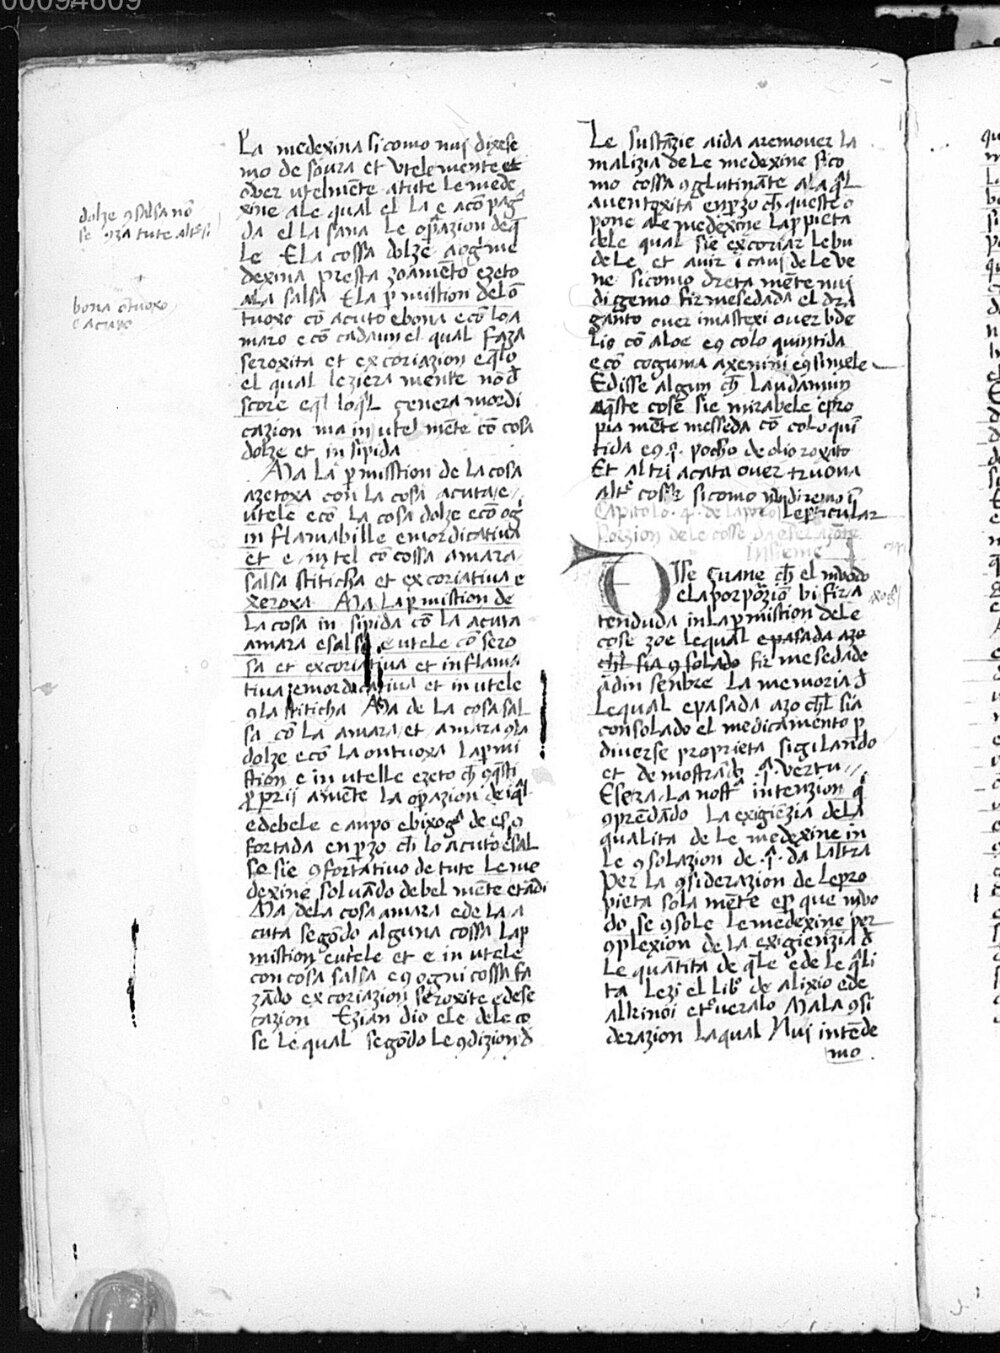 00094609
dolze 9salsa nō
se 9za tute altesi
bona cōtuoxo
e acuto
La medexina sicomo nui dixese
mo de soura et utele mente et
over utelmēte a tute le mede
xine a le qual el la e acōpag
da el la sana le op̄azion deq̄
le E la cossa dolze a ogi me
dexina presta zoamēto ezeto
a la salsa E la p mistion del ō
tuoxo cō acuto e bona e cō lo a
maro e cō cadaun el qual faza
seroxita et excoriazion e q̄lo
el qual leziera mente nō d̄
score e q̄l loq̄l genera mordi
cazion ma in utel mēte cō cosa
dolze et in sipida
Ma la p misstion de la cosa
azetoxa con la cosa acuta e
utele e cō la cosa dolze e cō og
in flamabille e mordicativa
et e in utel cō cossa amara
salsa stiticha et ex coriativa e
xeroxa Ma la p mistion de
la cosa in sipida cō la acuta
amara e salsa e utele cō sero
sa et excoriativa et in flama
tiva e mordicativa et in utele
9 la stiticha Ma de la cosa sal
sa cō la amara et amara 9 la
dolze e cō la ontuoxa la p mi
stion e in utelle ezeto ch̄ 9 q̄sti
p prii a mēte la op̄azion de iq̄l
e debele e anpo e bixog de esē
fortada enp̄zo ch̄ lo acuto e sal
so sie 9fortativo de tute le me
dexine solvādo debel mēte etādi
Ma dela cosa amara e de la a
cuta segōdo alguna cossa la p
mistion e utele et e in utele
con cosa salsa e 9 ogni cossa fa
zādo excoriazion seroxite e dese
cazion Ezian dio ele dele co
se le qual segōdo le 9dizion d̄
le sustāzie aida a remover la
malizia de le medexine sico
mo cossa 9glutināte a la q̄l
aventoxita enp̄zo ch̄ queste o
pone a le medexine la p pieta
dele qual sie excoriar le bu
dele et avir i cavi de le ve
ne sicomo dreta mēte nui
di gemo fir mesedada el dra
gāto over i mastexi over bde
lio cō aloe e 9 colo quintida
e cō coguma axenini e 9simele
E disse algun ch̄ laudamun
a q̄ste cose sie mirabele e pro
pia mēte messeda cō coloqui
tida e 9 .p. pocho de olio roxato
Et altri acata over truova
altre cosse sicomo nui diremo i
le pticular
Capitolo .4. de la ppor
zion dele cosse da eser azōte
insieme
Isse gvane ch̄ el muodo
e la porpōziō bi fir a
tenduda in la p mistion de le
cose zoe le qual e pasada azo
ch̄l sia 9solado fir mesedade
adin senbre La memoria d̄
le qual e pasada azo ch̄l sia
consolado el medicamento p
diverse proprieta sigilando
et demostrādo .p. vertu
E sera la nostra intenzion q̄
9prendādo la exigiēzia de la
qualita de le medexine in
le 9solazion de .p. da laltra
Per la 9siderazion de le pro
pieta sola mēte e p que muo
do se 9sole le medexine per
9plexion de la exigienzia d̄
le quātita de q̄le e de le q̄li
ta Lezi el libro de alixio e de
alkinoi et ueralo Ma la 9si
derazion la qual nui intēde
mo